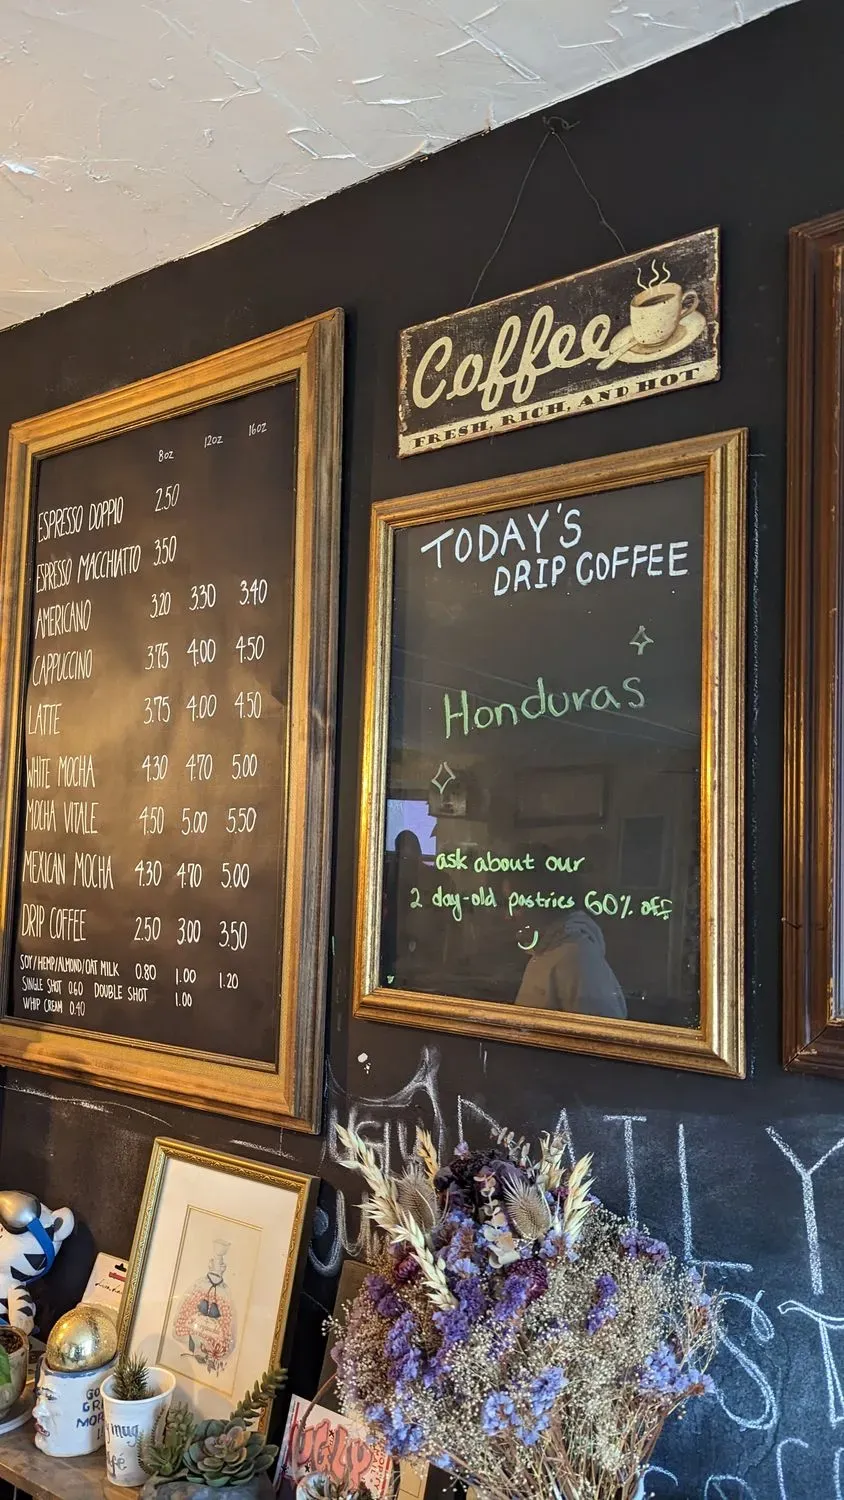 8oz 12oz 16oz
ESPRESSO DOPPIO 2.50
ESPRESSO MACCHIATTO 3.50
AMERICANO 3.20 3.30 3.40
CAPPUCCINO 3.75 4.00 4.50
LATTE 3.75 4.00 4.50
WHITE MOCHA 4.30 4.70 5.00
MOCHA VITALE 4.50 5.00 5.50
MEXICAN MOCHA 4.30 4.70 5.00
DRIP COFFEE 2.50 3.00 3.50
SOY/HEMP/ALMOND/OAT MILK 0.80 1.00 1.20
SINGLE SHOT 0.60 DOUBLE SHOT 1.00
WHIP CREAM 0.40
Coffee
FRESH, RICH, AND HOT
TODAY'S
DRIP COFFEE
Honduras
ask about our
2 day-old pastries 60% off
DAILY
mug
UGLY